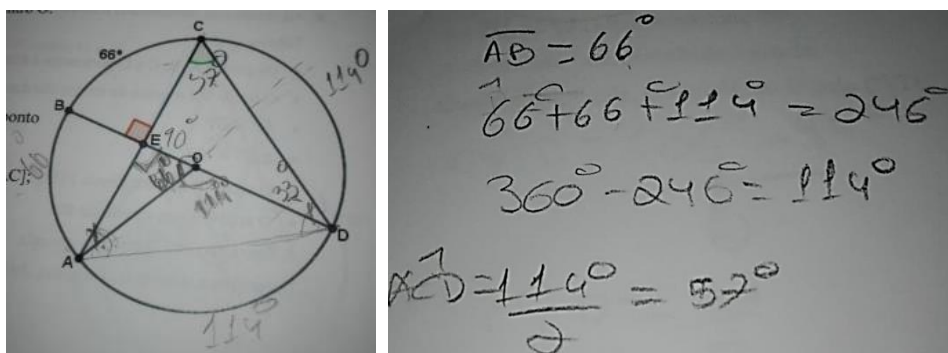 C
66°
57
114°
B
ponto
E
90°
O
.C];
114°
33
D
A
114°
AB = 66°
66° + 66° + 114° = 246°
360° - 246° = 114°
AĈD = 114° / 2 = 57°